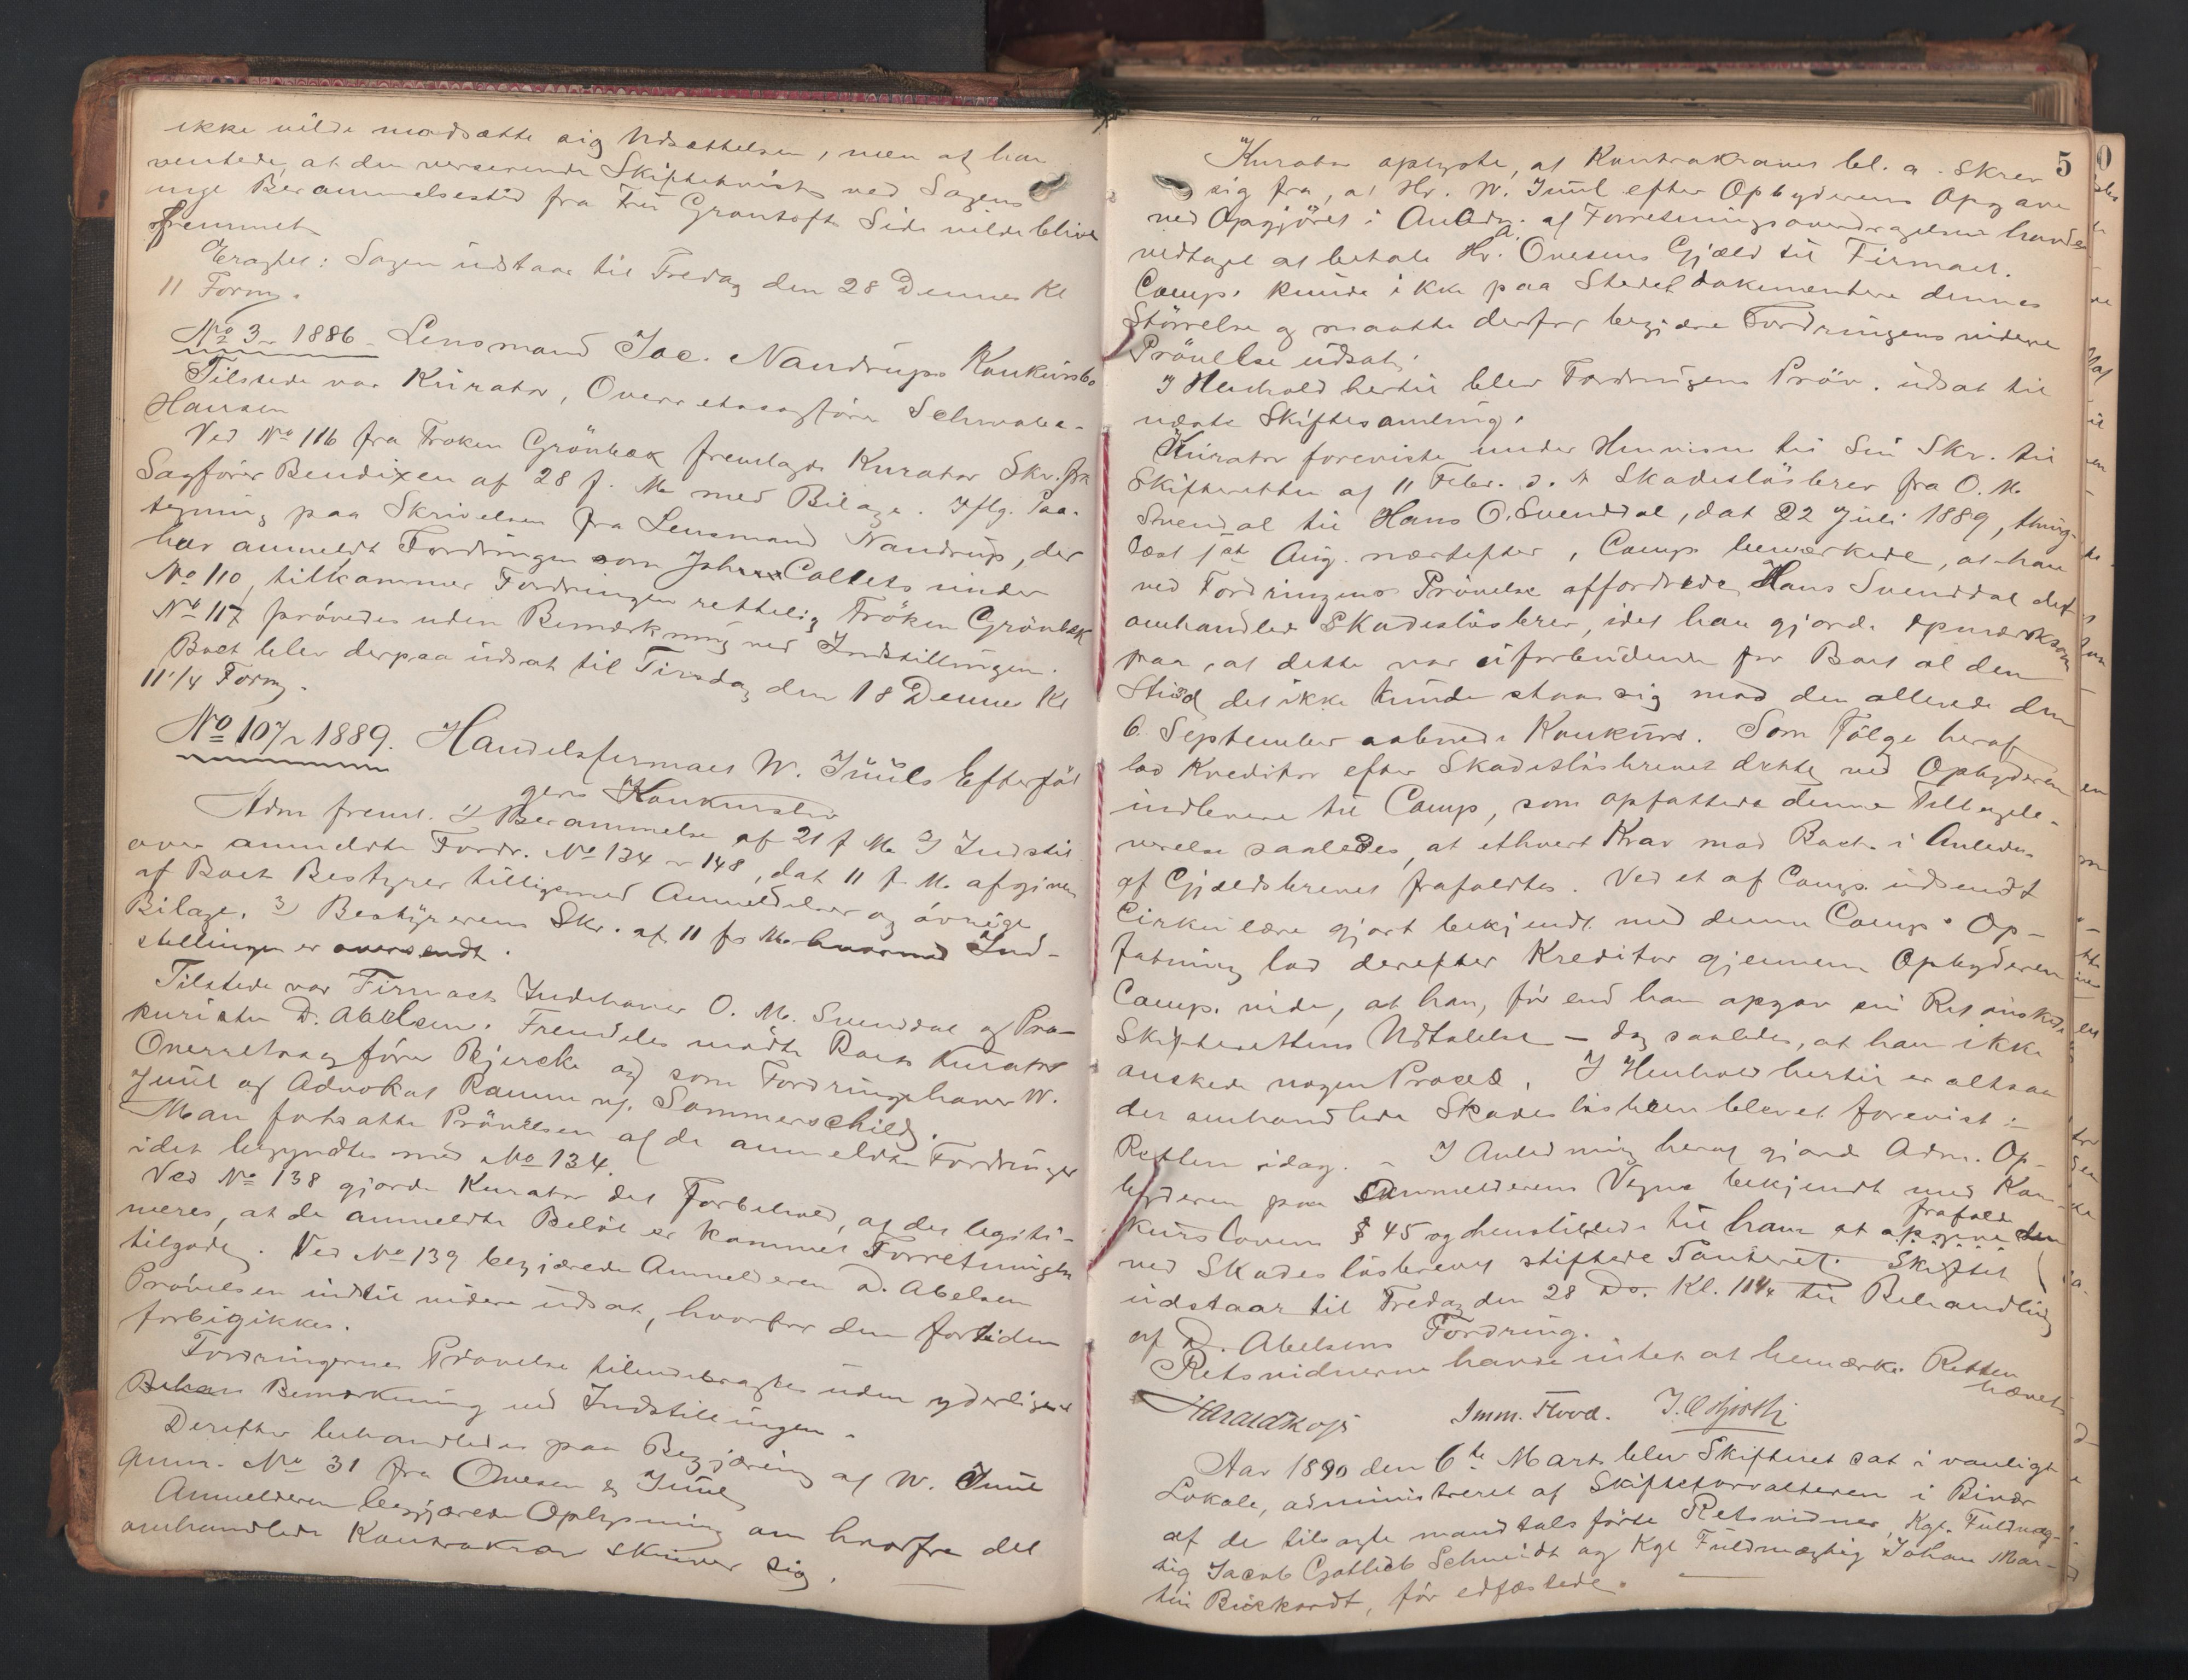 ikke vilde modsætte sig Udsættelsen, men at han
ventede, at den verserende Skiftetvist ved Sagens
nye Berammelsestid fra Fru Grøntofts Side vilde blive
fremmet
Eragtet: Sagen udstaar til Fredag den 28 Dennes Kl
11 Form.
No 3 - 1886 - Lensmand Jac. Nandrups Konkursbo
Tilstede var Kurator, Overretssagfører Schwabe-
Hansen
Ved No 116 fra Frøken Grönbæk fremlagde Kurator Skr. fra
Sagfører Bendixen af 28 f. M. med Bilage. Iflg. Paa-
tegning paa Skrivelsen fra Lensmand Nandrup, der
har anmeldt Fordringen som John Colletts under
No 110, tilkommer Fordringen rettelig Frøken Grönbæk
No 117 prövedes uden Bemærkning ved Indstillingen.
Boet blev derpaa udsat til Tirsdag den 18 Dennes Kl
11 1/4 Form.
No 107 - 1889. Handelsfirmaet W. Juuls Efterföl
gers Konkursbo
Adm freml. 1) Berammelse af 21 f M. 2 Indstil
over anmeldte Fordr. No 134 - 148, dat 11 f. M. afgiven
af Boets Bestyrer tilligemed Anmeldelser og övrige
Bilage. 3) Bestyrerens Skr. af 11 f. M. hvormed Ind-
stillingen er oversendt.
Tilstede var Firmaets Indehaver O. M. Svenddal og Pro-
kuristen D. Abelsen. Fremdeles mödte Boets Kurator
Overretssagfører Bjercke og som Fordringshaver W.
Juul og Advokat Ramm v/. Sommerschild.
Man fortsatte Prövelsen af de anmeldte Fordringer
idet begyndtes med No 134.
Ved No 138 gjorde Kurator det Forbehold, at det legiti-
meres, at de anmeldte Belöb er kommet Forretningen
tilgode. Ved No 139 begjærede Anmelderen D. Abelsen
Prövelsen indtil videre udsat, hvorfor den fortiden
forbigikkes.
Fordringernes Prövelse tilendebragtes uden yderligere
Bemærkning ved Indstillingen.
Derefter behandledes paa Begjæring af W. Juul
Anm. No 31 fra Ovesen & Juul
Anmelderen begjærede Oplysning om hvorfra det
omhandlede Kontrakrav skriver sig.
5
Kurator oplyste, at Kontrakravet bl. a. skrev
sig fra, at Hr. W. Juul efter Opbyderens Opgave
ved Opgjöret i Anledn. af Forretningsoverdragelsen havde
vedtaget at betale Hr. Ovesens Gjæld til Firmaet.
Comp. kunde ikke paa Stedet dokumentere dennes
Störrelse og maatte derfor begjære Fordringens videre
Prövelse udsat.
I Henhold hertil blev Fordringens Pröv. udsat til
næste Skiftesamling.
Kurator foreviste under Henvisn til Sin Skr. til
Skifteretten af 11 Febr. d. A Skadeslösbrev fra O. M.
Svenddal til Hans O. Svenddal, dat 22 Juli 1889, thing-
læst 1ste Aug. næstefter, Comp. bemærkede, at han
ved Fordringens Prövelse affordrede Hans Svenddal det
omhandlede Skadeslösbrev, idet han gjorde opmærksom
paa, at dette var uforbindende for Boet al den
Stund det ikke kunde staa sig mod den allerede den
6. September aabnede Konkurs. Som Fölge heraf
lod Kreditor efter Skadeslösbrevet dette ved Opbyderen
indlevere til Comp, som opfattede denne Tilbagele-
verelse saaledes, at ethvert Krav mod Boet i Anledn.
af Gjældsbrevet frafaldtes. Ved et af Comp. udsendt
Cirkulære gjort bekjendt med denne Comp's Op-
fatning lod derefter Kreditor gjennem Opbyderen
Comp. vide, at han, för end han opgav sin Ret önskede
Skifterettens Udtalelse - dog saaledes, at han ikke
önskede nogen Proces. I Henhold hertil er altsaa
det omhandlede Skadeslösbrev blevet forevist i
Retten idag. - I Anledning heraf gjorde Adm. Op-
byderen paa Anmelderens Vegne bekjendt med Kon-
kurslovens § 45 og henstillede til ham at opgive den
frafalde
ved Skadeslösbrevet stiftede Panteret. Skiftet
udstaar til Fredag den 28 Ds. Kl. 11 1/4 til Behandling
af D. Abelsens Fordring.
Retsvidnerne havde intet at bemærke. Retten
hævet
Imm. Flood.
Aar 1890 den 6te Marts blev Skifteret sat i vanligt
Lokale, administreret af Skifteforvalteren i Bivær
af de tilsagte mandtalsförte Retsvidner, Kgl. Fuldmæg-
tig Jacob Gotlieb Schmidt og Kgl Fuldmægtig Johan Mar-
tin Burkardt, för edfæstede.